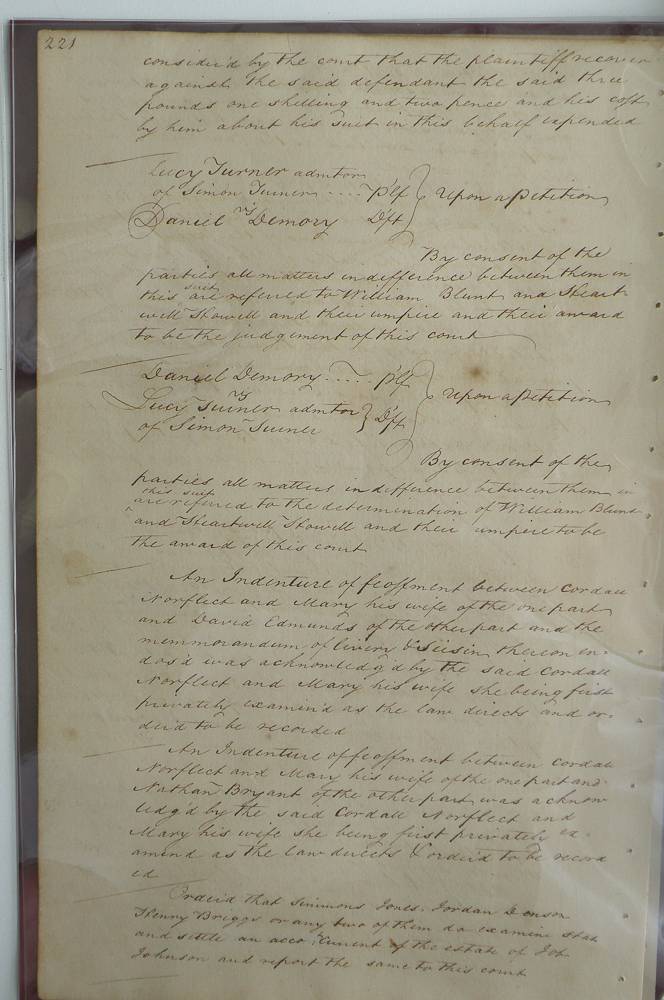 221
consider'd by the court that the plaintiff recover
against the said defendant the said three
pounds one shilling and two pence and his cost
by him about his suit in this behalf expended
Lucy Turner admtor
of Simon Turner .... P'lf } Upon a Petition
vs
Daniel Demory D'ft
By consent of the
parties all matters in difference between them in
this suit are referred to William Blunt and
well Howell and their umpire and their award
to be the judgement of this court
Daniel Demory .... p'lf } Upon a Petition
vs
Lucy Turner admtor } D'ft
of Simon Turner
By consent of the
parties all matters in difference between them in
this suit
are refered to the determination of William Blunt
and Howell and their umpire to be
the award of this court
An Indenture of feoffment between Cordall
Norfleet and Mary his wife of the one part
and David Edmunds of the other part and the
memmorandum of livery & seisin thereon en-
dos'd was acknowledg'd by the said Cordall
Norfleet and Mary his wife she being first
privately examin'd as the law directs and or-
der'd to be recorded
An Indenture of feoffment between Cordall
Norfleet and Mary his wife of the one part and
Nathan Bryant of the other part was acknow
ledg'd by the said Cordall Norfleet and
Mary his wife she being first privately ex-
amind as the law directs & order'd to be record
ed
Order'd that Simmons Jones, Jordan Denson
Henry Briggs or any two of them do examine state
and settle an acco: Current of the estate of Job
Johnson and report the same to this court